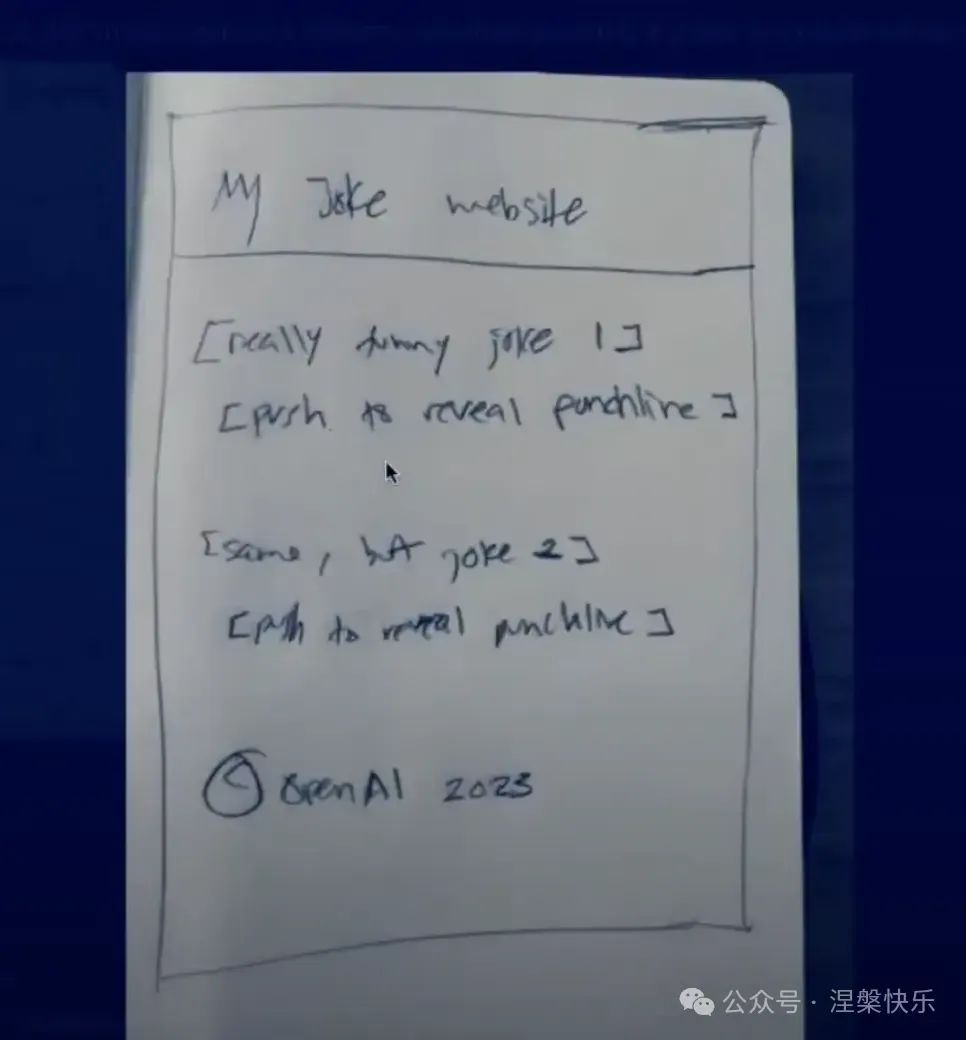 My Joke website
[really funny joke 1]
[push to reveal punchline]
[same, but joke 2]
[push to reveal punchline]
© OpenAI 2023
公众号 · 涅槃快乐